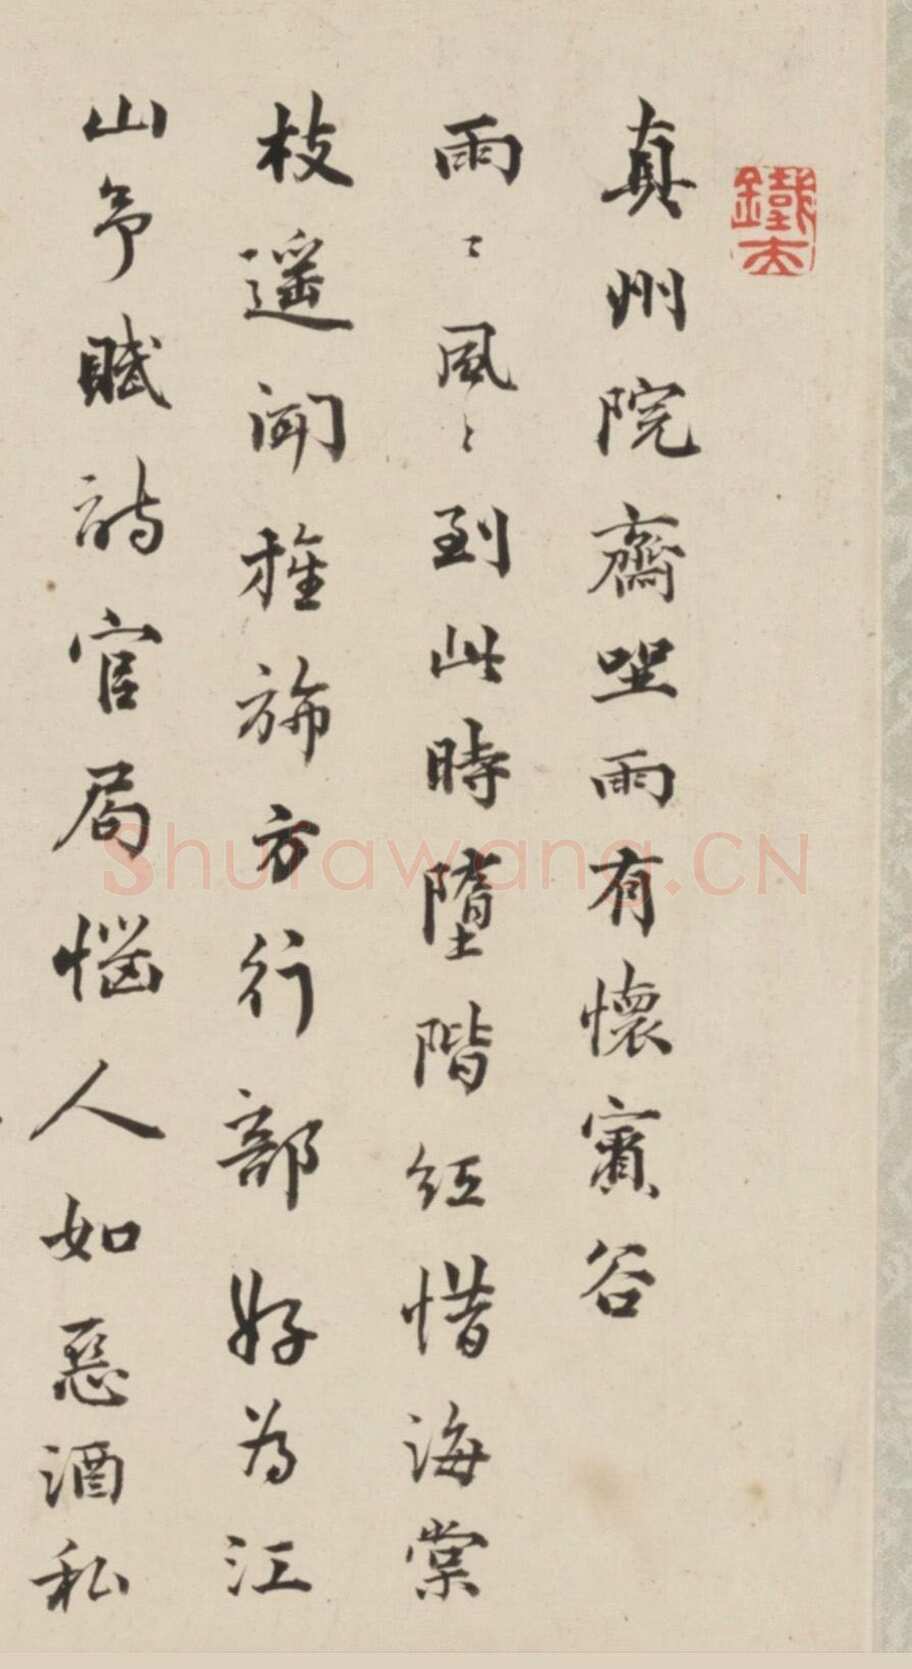 鐵夫
真州院齋坐雨有懷賓谷
雨〻風〻到此時墮階紅惜海棠
枝遥聞旌斾方行部好為江
山予賦詩官局惱人如惡酒私
Shufawang.CN